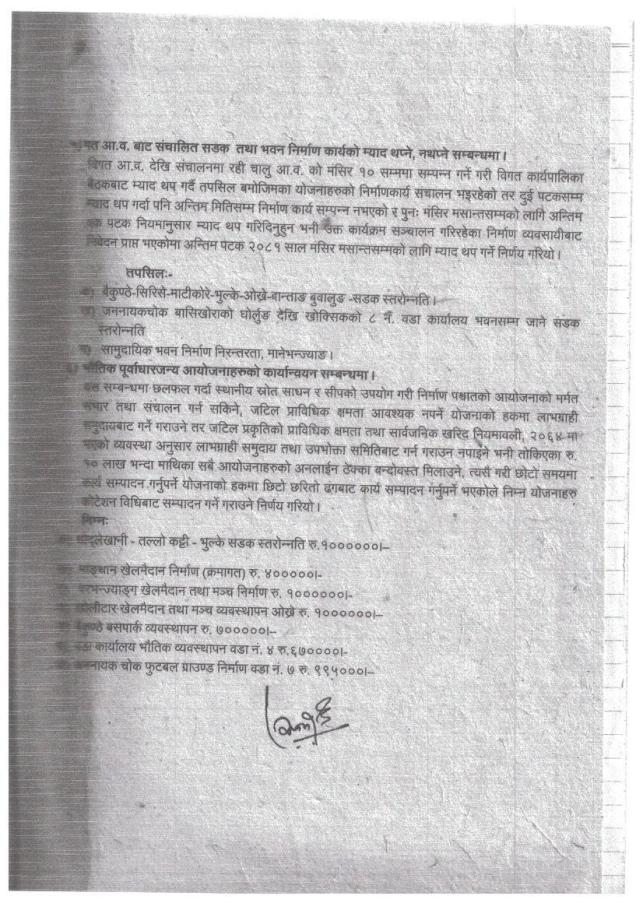 गत आ.व. बाट संचालित सडक तथा भवन निर्माण कार्यको म्याद थप्ने, नथप्ने सम्बन्धमा ।
विगत आ.व. देखि संचालनमा रही चालु आ.व. को मंसिर १० सम्ममा सम्पन्न गर्ने गरी विगत कार्यपालिका
बैठकबाट म्याद थप गर्दै तपसिल बमोजिमका योजनाहरुको निर्माणकार्य संचालन भइरहेको तर दुई पटकसम्म
म्याद थप गर्दा पनि अन्तिम मितिसम्म निर्माण कार्य सम्पन्न नभएको र पुनः मंसिर मसान्तसम्मको लागि अन्तिम
एक पटक नियमानुसार म्याद थप गरिदिनुहुन भनी उक्त कार्यक्रम सञ्चालन गरिरहेका निर्माण व्यवसायीबाट
निवेदन प्राप्त भएकोमा अन्तिम पटक २०८१ साल मंसिर मसान्तसम्मको लागि म्याद थप गर्ने निर्णय गरियो ।
तपसिलः-
क) बैकुण्ठे-सिरिसे-माटीकोरे-भुल्के-ओख्रे-बान्ताङ बुवालुङ -सडक स्तरोन्नति ।
ख) जननायकचोक बासिखोराको घोर्लुङ देखि खोक्सिकको ८ नं. वडा कार्यालय भवनसम्म जाने सडक
स्तरोन्नति
ग) सामुदायिक भवन निर्माण निरन्तरता, मानेभन्ज्याङ ।
भौतिक पूर्वाधारजन्य आयोजनाहरुको कार्यान्वयन सम्बन्धमा ।
यस सम्बन्धमा छलफल गर्दा स्थानीय स्रोत साधन र सीपको उपयोग गरी निर्माण पश्चातको आयोजनाको मर्मत
संभार तथा संचालन गर्न सकिने, जटिल प्राविधिक क्षमता आवश्यक नपर्ने योजनाको हकमा लाभग्राही
समुदायबाट गर्ने गराउने तर जटिल प्रकृतिको प्राविधिक क्षमता तथा सार्वजनिक खरिद नियमावली, २०६४ मा
भएको व्यवस्था अनुसार लाभग्राही समुदाय तथा उपभोक्ता समितिबाट गर्न गराउन नपाइने भनी तोकिएका रु.
१० लाख भन्दा माथिका सबै आयोजनाहरुको अनलाईन ठेक्का बन्दोवस्त मिलाउने, त्यसै गरी छोटो समयमा
कार्य सम्पादन गर्नुपर्ने योजनाको हकमा छिटो छरितो ढंगबाट कार्य सम्पादन गर्नुपर्ने भएकोले निम्न योजनाहरु
कोटेशन विधिबाट सम्पादन गर्ने गराउने निर्णय गरियो ।
निम्नः
- तल्लो कट्टी - भुल्के सडक स्तरोन्नति रु.१००००००।–
खेलमैदान निर्माण (क्रमागत) रु. ४०००००।–
खेलमैदान तथा मञ्च निर्माण रु. १००००००।–
खेलमैदान तथा मञ्च व्यवस्थापन ओख्रे रु. १००००००।–
बैकुण्ठे बसपार्क व्यवस्थापन रु. ७०००००।–
वडा कार्यालय भौतिक व्यवस्थापन वडा नं. ४ रु.६७००००।–
जननायक चोक फुटबल ग्राउण्ड निर्माण वडा नं. ७ रु. ९९५०००।–